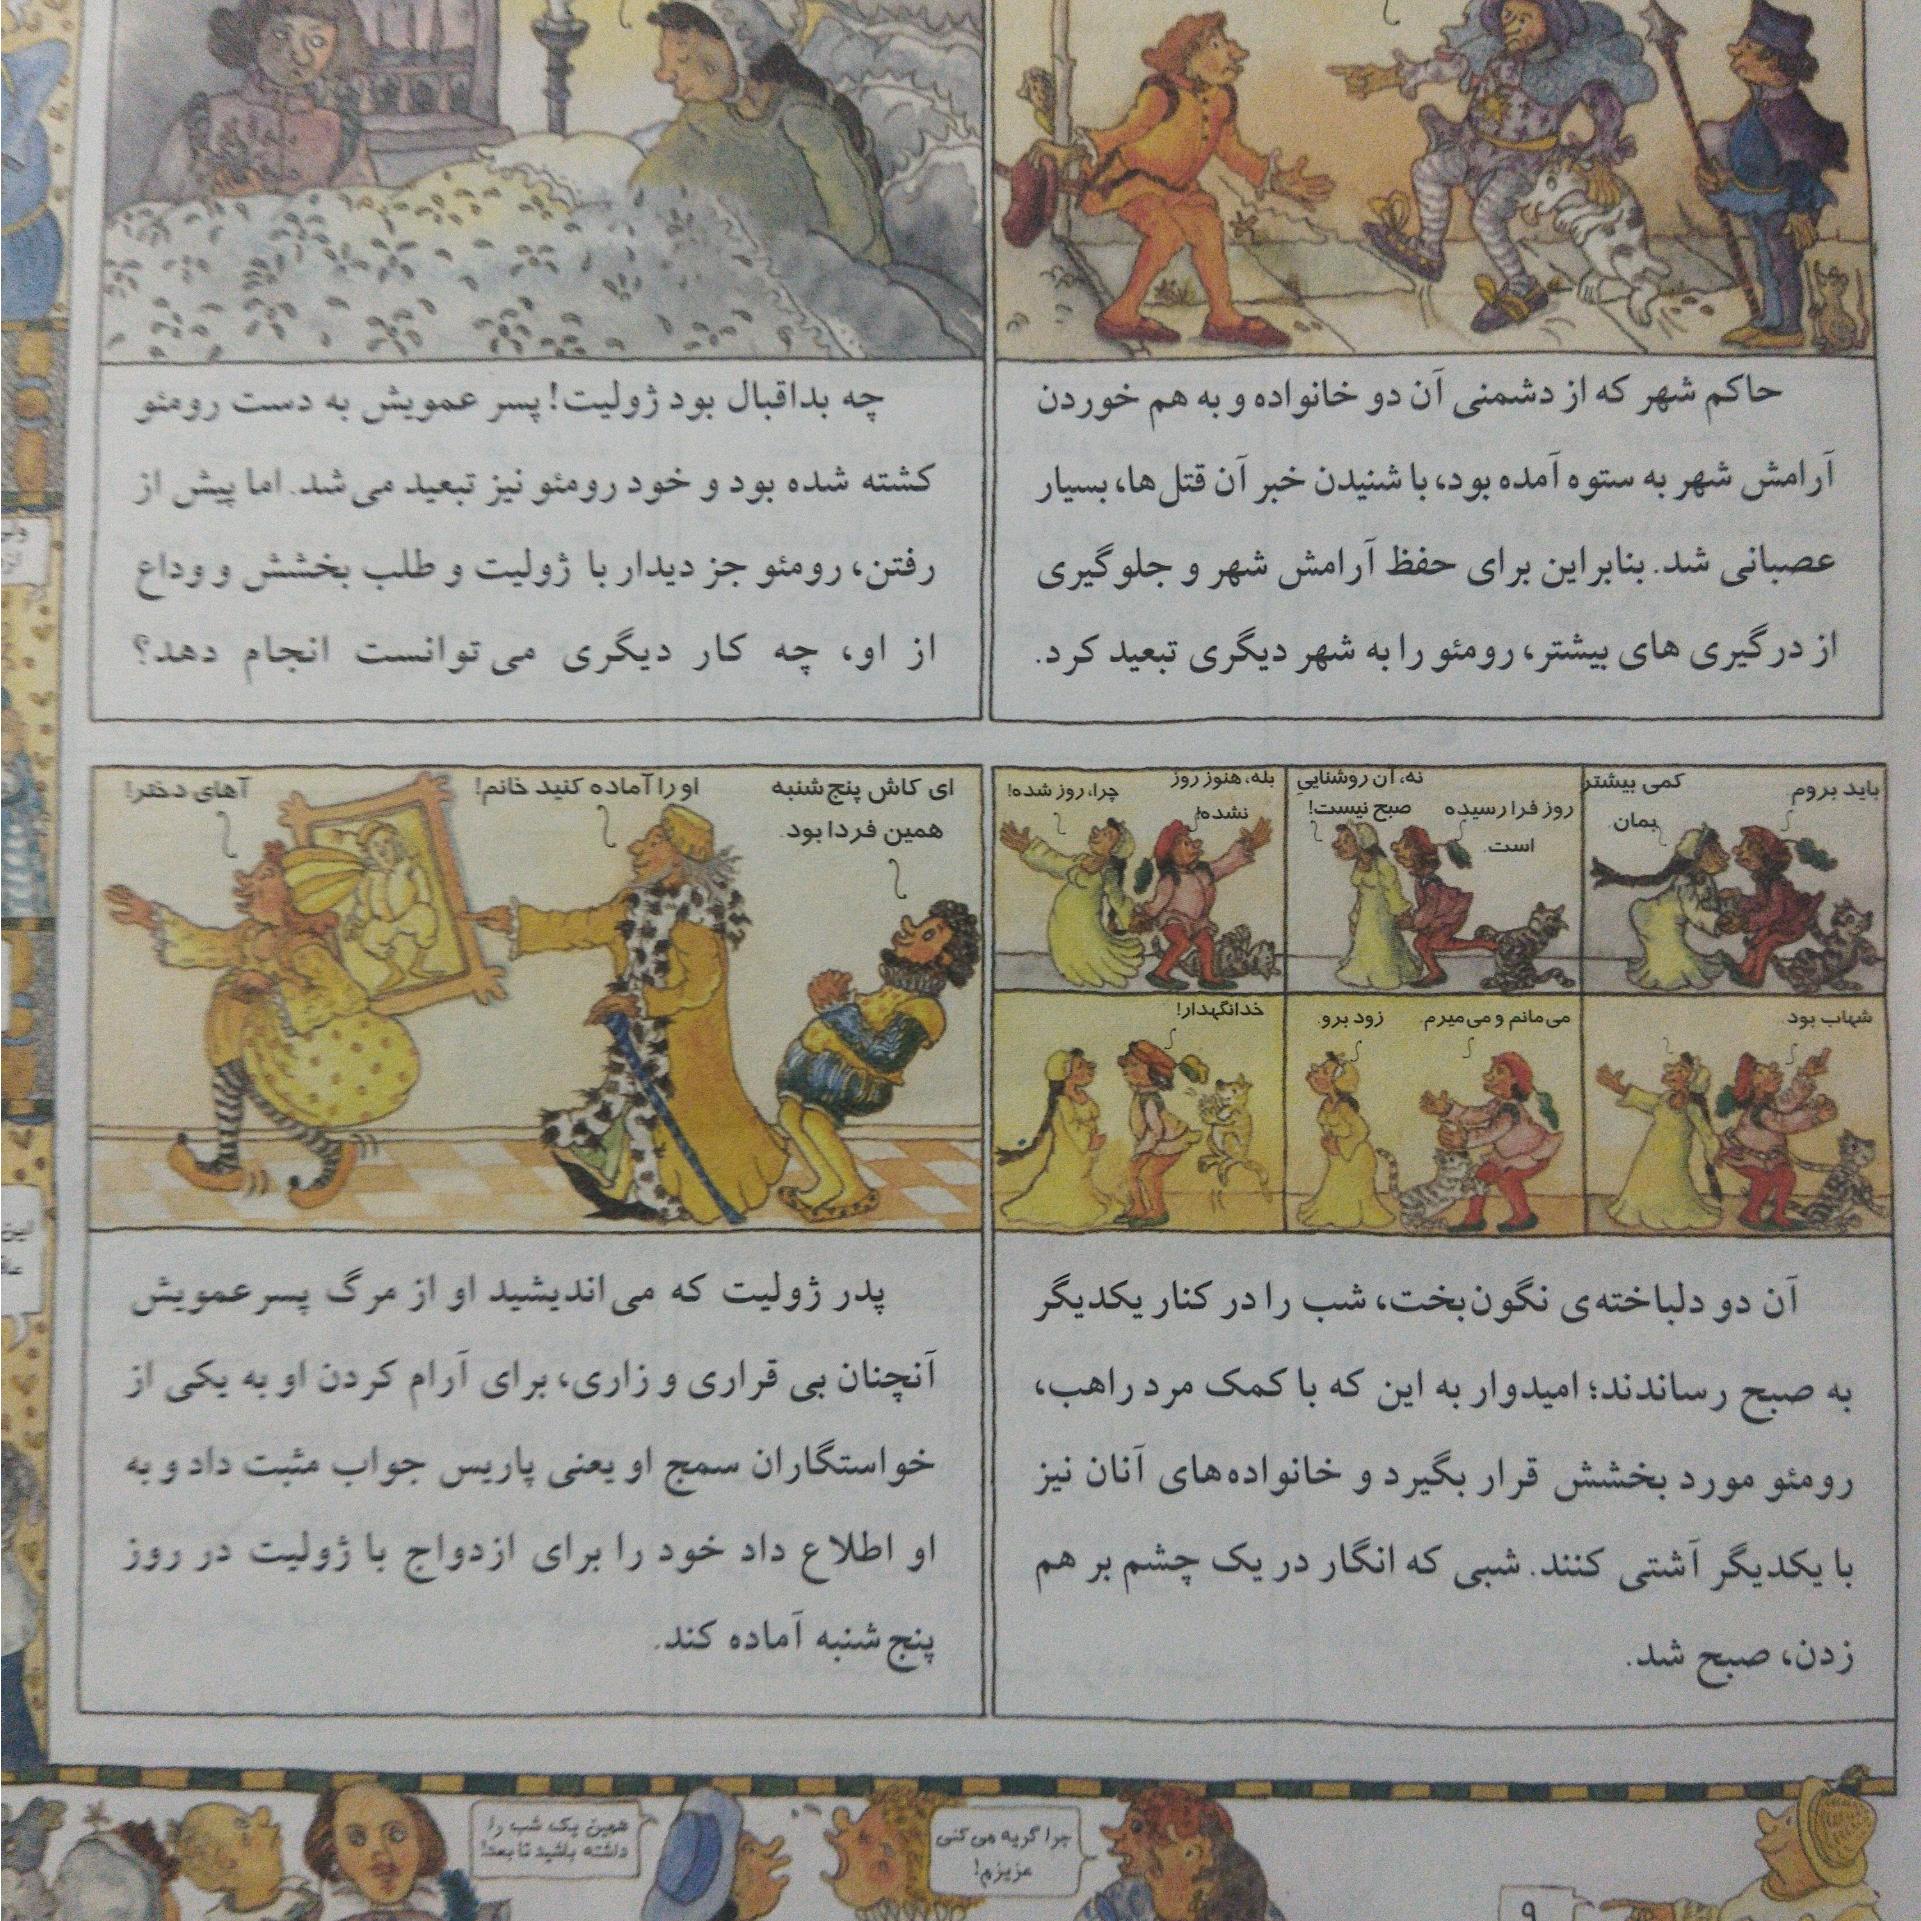 حاکم شهر که از دشمنی آن دو خانواده و به هم خوردن
آرامش شهر به ستوه آمده بود، با شنیدن خبر آن قتل‌ها، بسیار
عصبانی شد. بنابراین برای حفظ آرامش شهر و جلوگیری
از درگیری های بیشتر، رومئو را به شهر دیگری تبعید کرد.
چه بداقبال بود ژولیت! پسر عمویش به دست رومئو
کشته شده بود و خود رومئو نیز تبعید می‌شد. اما پیش از
رفتن، رومئو جز دیدار با ژولیت و طلب بخشش و وداع
از او، چه کار دیگری می‌توانست انجام دهد؟
باید بروم
کمی بیشتر
بمان.
روز فرا رسیده
است.
نه، آن روشناییِ
صبح نیست!
بله، هنوز روز
نشده!
چرا، روز شده!
شهاب بود.
می‌مانم و می‌میرم.
زود برو.
خدانگهدار!
آن دو دلباخته‌ی نگون‌بخت، شب را در کنار یکدیگر
به صبح رساندند؛ امیدوار به این که با کمک مرد راهب،
رومئو مورد بخشش قرار بگیرد و خانواده‌های آنان نیز
با یکدیگر آشتی کنند. شبی که انگار در یک چشم بر هم
زدن، صبح شد.
ای کاش پنج‌شنبه
همین فردا بود.
او را آماده کنید خانم!
آهای دختر!
پدر ژولیت که می‌اندیشید او از مرگ پسرعمویش
آنچنان بی قراری و زاری، برای آرام کردن او به یکی از
خواستگاران سمج او یعنی پاریس جواب مثبت داد و به
او اطلاع داد خود را برای ازدواج با ژولیت در روز
پنج‌شنبه آماده کند.
چرا گریه می‌کنی
عزیزم!
همین یک شب را
داشته باشید تا بعد!
۹